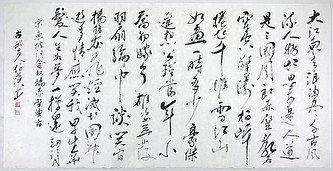 大江東去浪淘盡千古風
流人物故壘西邊人道
是三國周郎赤壁亂石
穿空驚濤拍岸
捲起千堆雪江山
如畫一時多少豪傑
遙想公瑾當年小
喬初嫁了雄姿英發
羽扇綸巾談笑間
檣櫓灰飛煙滅故國神
遊多情應笑我早生華
髮人生如夢一樽還酹江月